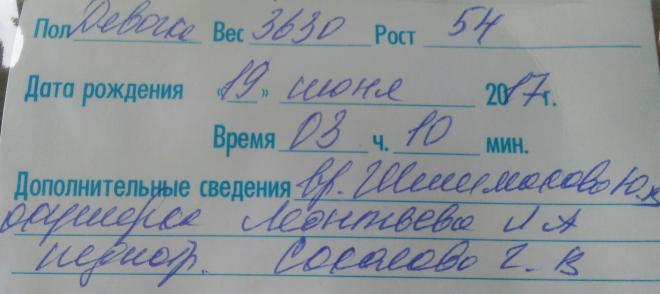 Пол Девочка Вес 3630 Рост 54
Дата рождения «19» июня 2017г.
Время 03 ч. 10 мин.
Дополнительные сведения вр. Шишмакова Ю.
акушерка Леонтьева Л А
педиатр. Соколова Г. В